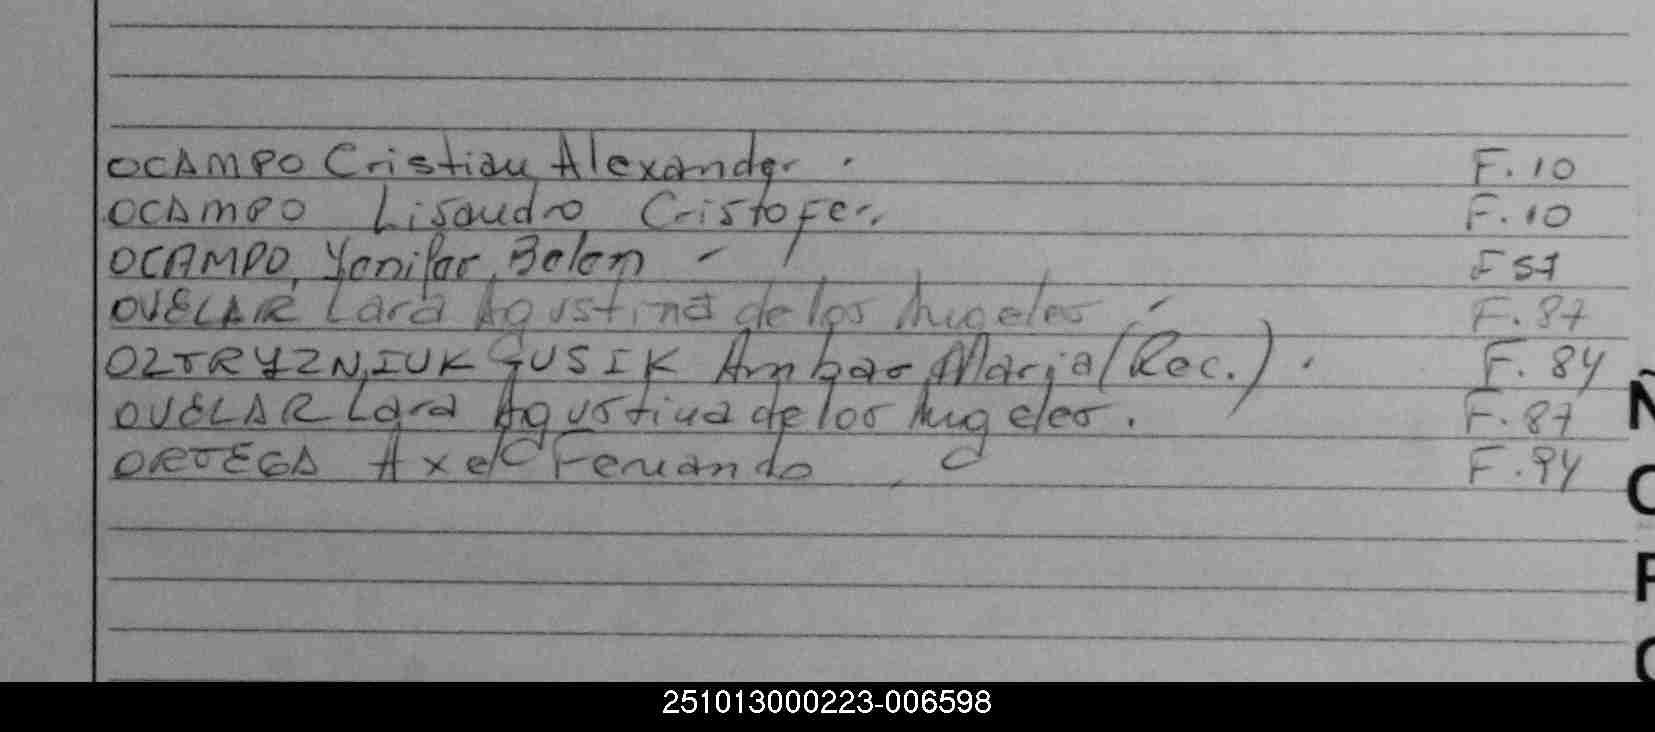 OCAMPO Cristian Alexander. F. 10
OCAMPO Lisandro Cristofer. F. 10
OCAMPO, Yenifer Belen - F 57
OVELAR Lara Agustina de los Angeles - F. 87
OLTRYZNIUK GUSIK Ambar Maria (Rec.). F. 84
OVELAR Lara Agustina de los Angeles. F. 87
ORTEGA Axel Fernando F. 94
Ñ
O
P
251013000223-006598